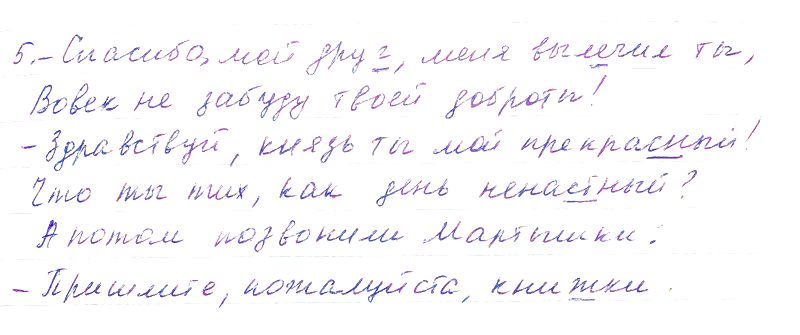 5. – Спасибо, мой друг, меня вылечил ты,
Вовек не забуду твоей доброты!
– Здравствуй, князь ты мой прекрасный!
Что ты тих, как день ненастный?
А потом позвонили Мартышки:
– Пришлите, пожалуйста, книжки.